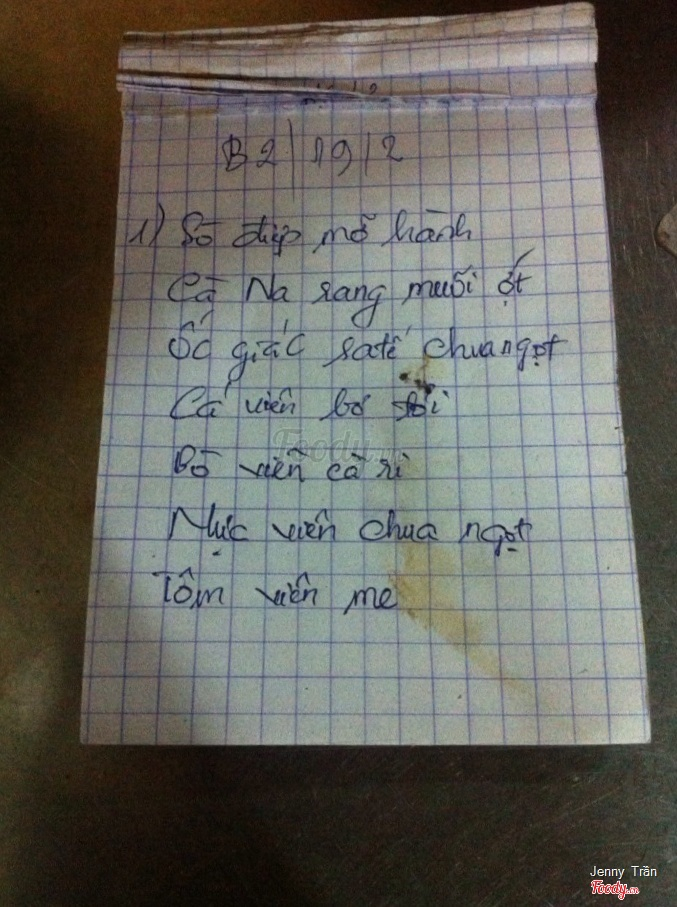 B2 | 19 | 2
1) Sò điệp mỡ hành
Cà Na rang muối ớt
Ốc giác satế chua ngọt
Cá viên bơ tỏi
Bò viên cà ri
Mực viên chua ngọt
Tôm viên me
Foody.vn
Jenny Trần
Foody.vn